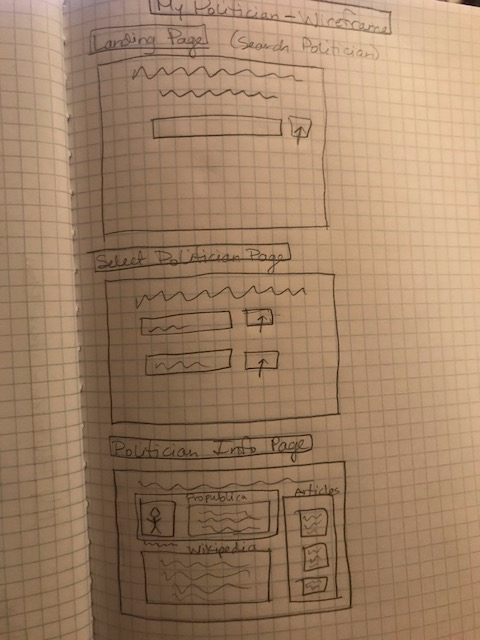 My Politician - Wireframe
Landing Page (Search Politician)
Select Politician Page
Politician Info Page
Articles
Propublica
Wikipedia